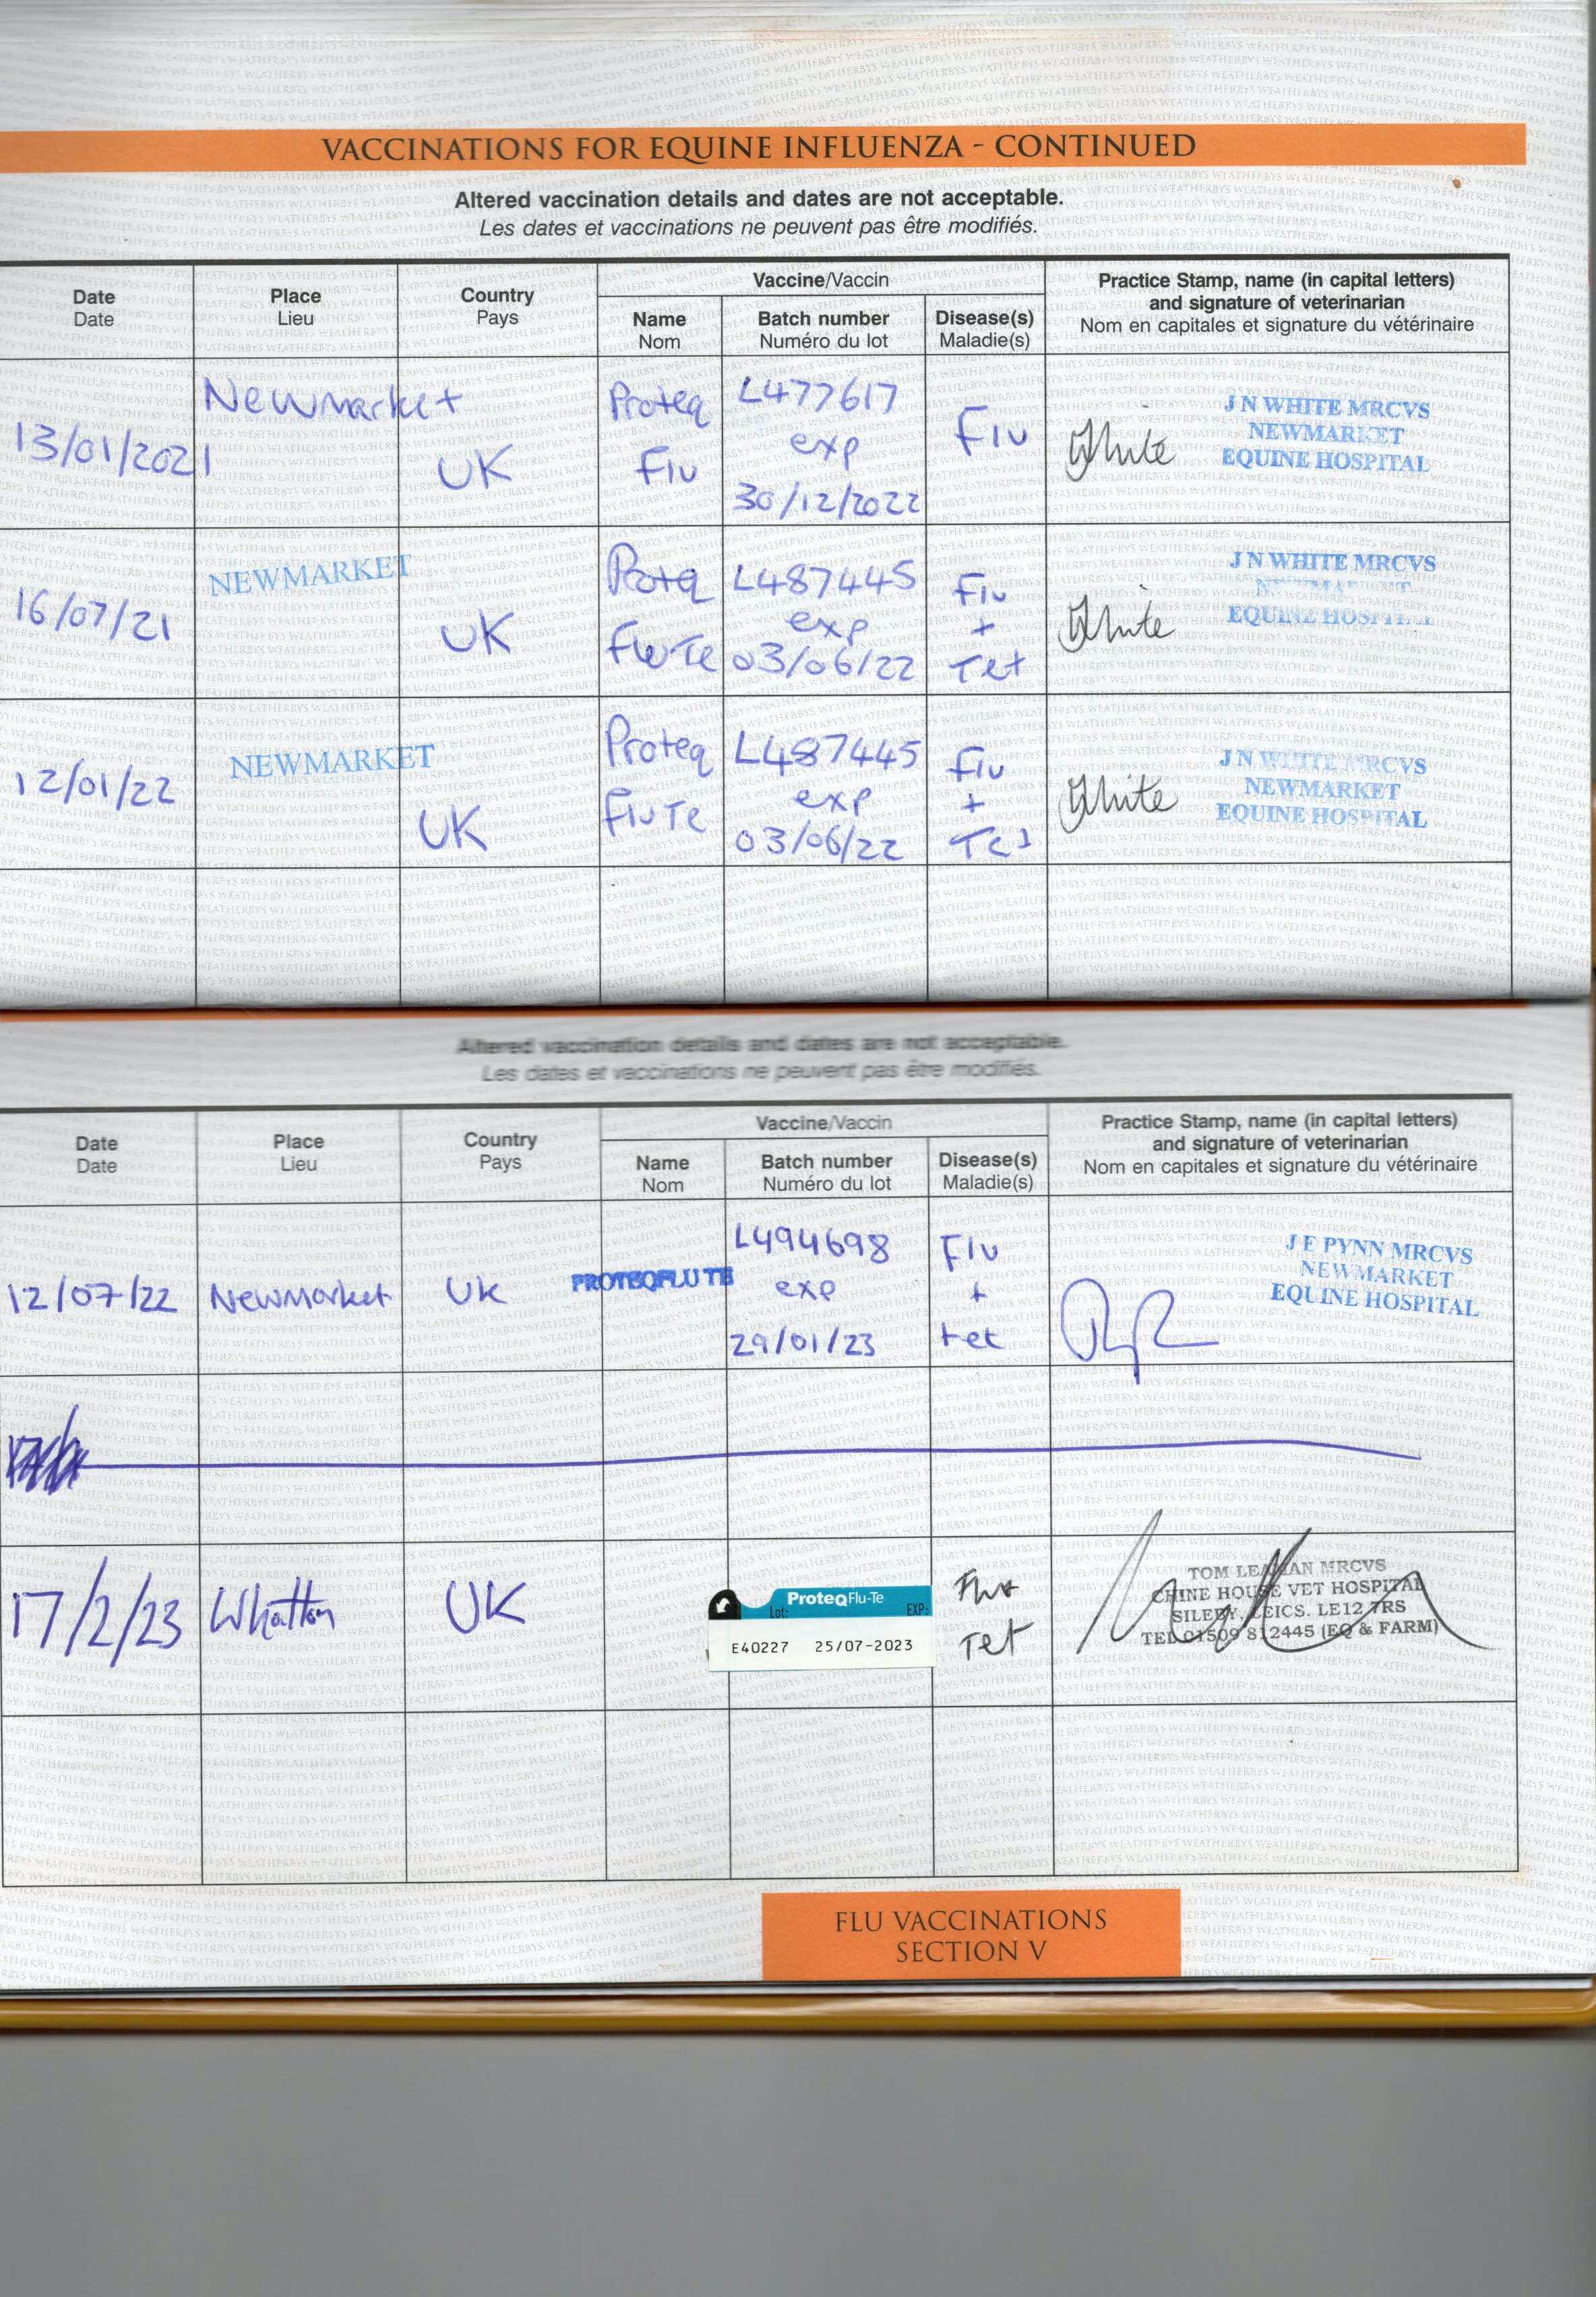 VACCINATIONS FOR EQUINE INFLUENZA - CONTINUED
Altered vaccination details and dates are not acceptable.
Les dates et vaccinations ne peuvent pas être modifiés.
Date
Date
Place
Lieu
Country
Pays
Vaccine/Vaccin
Name
Nom
Batch number
Numéro du lot
Disease(s)
Maladie(s)
Practice Stamp, name (in capital letters)
and signature of veterinarian
Nom en capitales et signature du vétérinaire
13/01/2021
Newmarket
UK
Proteq
Flu
L477617
exp
30/12/2022
Flu
White
J N WHITE MRCVS
NEWMARKET
EQUINE HOSPITAL
16/07/21
NEWMARKET
UK
Proteq
FluTe
L487445
exp
03/06/22
Flu
+
Tet
White
J N WHITE MRCVS
NEWMARKET
EQUINE HOSPITAL
12/01/22
NEWMARKET
UK
Proteq
FluTe
L487445
exp
03/06/22
Flu
+
Tet
White
J N WHITE MRCVS
NEWMARKET
EQUINE HOSPITAL
Altered vaccination details and dates are not acceptable.
Les dates et vaccinations ne peuvent pas être modifiés.
Date
Date
Place
Lieu
Country
Pays
Vaccine/Vaccin
Name
Nom
Batch number
Numéro du lot
Disease(s)
Maladie(s)
Practice Stamp, name (in capital letters)
and signature of veterinarian
Nom en capitales et signature du vétérinaire
12/07/22
Newmarket
UK
PROTEQFLU TE
L494698
exp
29/01/23
Flu
+
tet
J E PYNN MRCVS
NEWMARKET
EQUINE HOSPITAL
17/2/23
Whatton
UK
ProteqFlu-Te
Lot: EXP:
E40227 25/07-2023
Flu +
Tet
TOM LEAMAN MRCVS
CHINE HOUSE VET HOSPITAL
SILEBY, LEICS. LE12 7RS
TEL 01509 812445 (EQ & FARM)
FLU VACCINATIONS
SECTION V